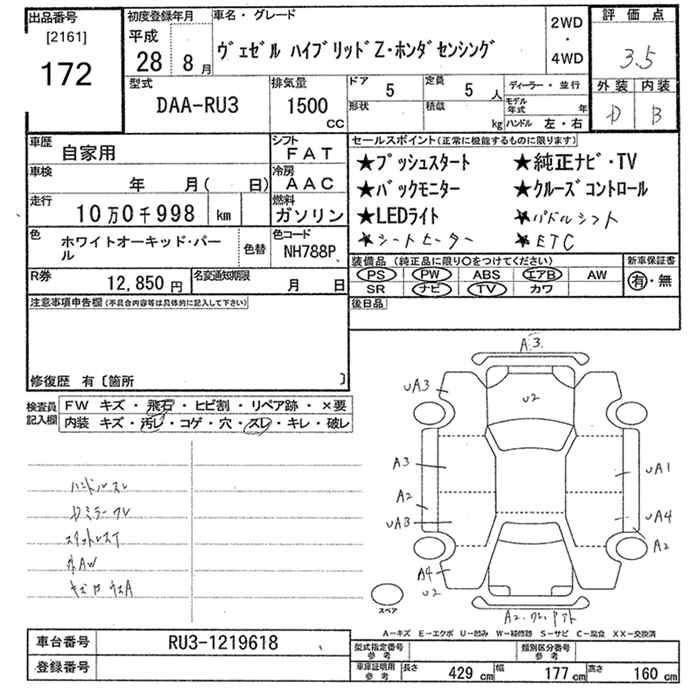 出品番号 初度登録年月 車名・グレード 評価点
[2161] 平成 2WD
172 28年 8月 ヴェゼル ハイブリッドZ・ホンダセンシング ・ 3.5
4WD
型式 排気量 ドア 5 定員 5人 ディーラー・並行 外装 内装
DAA-RU3 1500 CC 形状 積載 kg モデル年式 年 D B
ハンドル 左・右
車歴 自家用 シフト FAT セールスポイント(正常に機能するものに限ります)
車検 年 月( 日) 冷房 AAC ★プッシュスタート ★純正ナビ・TV
★バックモニター ★クルーズコントロール
走行 10万0千998 km 燃料 ガソリン ★LEDライト ★パドルシフト
★シートヒーター ★ETC
色 ホワイトオーキッド・パール 色替 色コード NH788P 装備品(純正品に限り○をつけてください) 新車保証書
PS PW ABS エアB AW 有・無
R券 12,850円 名変通知期限 月 日 SR ナビ TV カワ
注意事項申告欄(不具合内容等は具体的に記入して下さい) 後日品
修復歴 有〔箇所 〕
検査員記入欄 FW キズ・飛石・ヒビ割・リペア跡・×要
内装 キズ・汚レ・コゲ・穴・スレ・キレ・破レ
A3
UA3 U2
A3 UA1
A2
UA3 UA4
A2
A4
U2
ハンドルスレ
外AW
スペア
A-キズ E-エクボ U-凹み W-補修跡 S-サビ C-腐食 XX-交換済
車台番号 RU3-1219618 型式指定番号 参考 類別区分番号 参考
登録番号 車庫証明用 参考 長さ 429 cm 幅 177 cm 高さ 160 cm